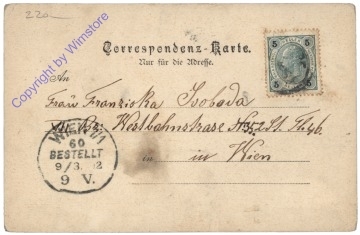 220-
Copyright by Wimstore
Correspondenz-Karte.
Nur für die Adresse.
5 5
5 5
An
Frau Franziska Svobada
VII. Bz. Westbahnstrase No 52 St. Th 46.
in in Wien
WIEN
60
BESTELLT
9/3.
9 V.